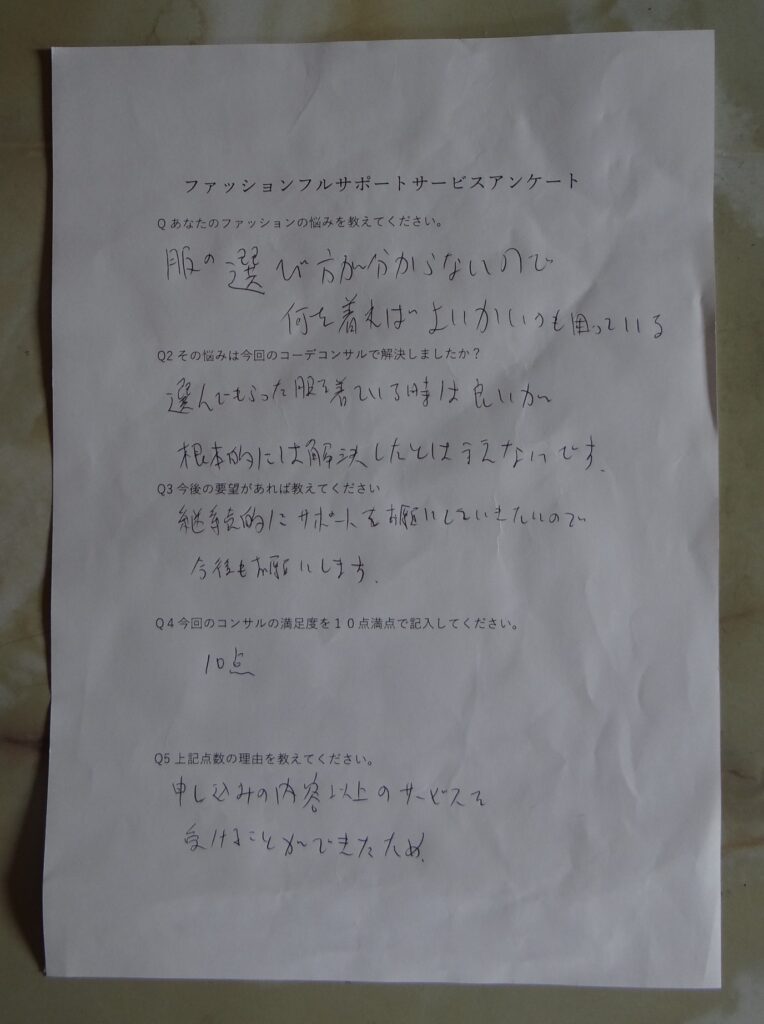 ファッションフルサポートサービスアンケート
Q あなたのファッションの悩みを教えてください。
服の選び方が分からないので
何を着ればよいかいつも困っている
Q2 その悩みは今回のコーデコンサルで解決しましたか？
選んでもらった服を着ている時は良いが
根本的には解決したとは言えないです.
Q3 今後の要望があれば教えてください
継続的にサポートをお願いしていきたいので
今後もお願いします.
Q４今回のコンサルの満足度を１０点満点で記入してください。
10点
Q5 上記点数の理由を教えてください。
申し込みの内容以上のサービスを
受けることができたため.